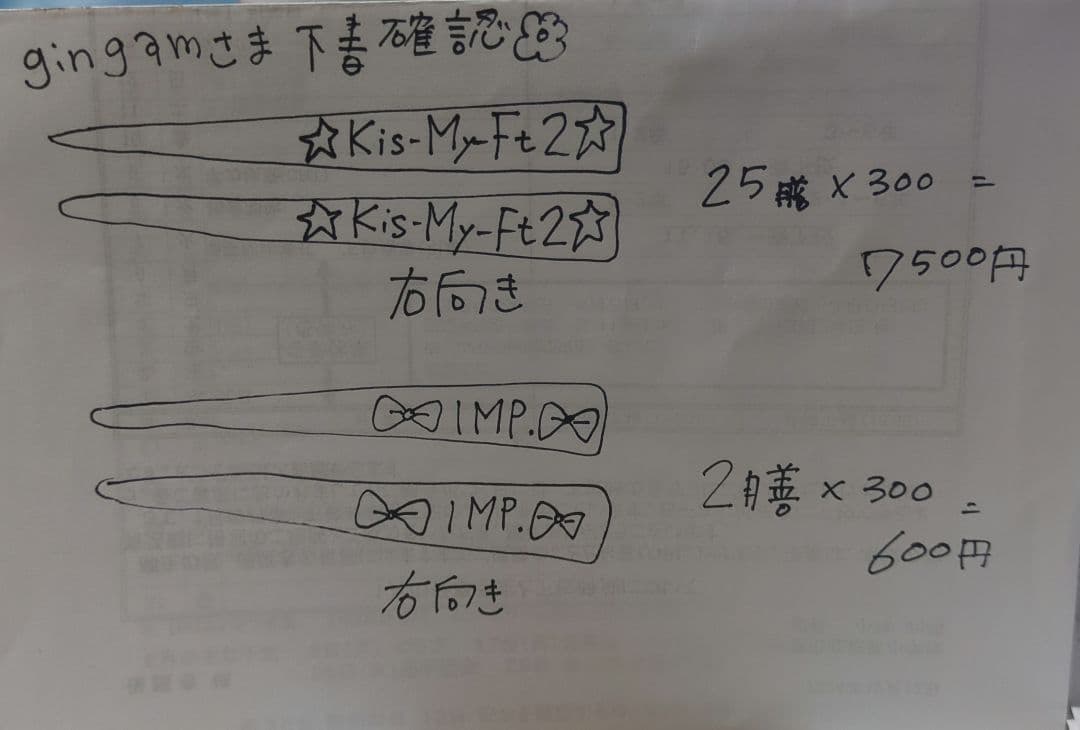 gingamさま 下書確認
☆Kis-My-Ft2☆
☆Kis-My-Ft2☆
右向き
25膳×300 =
7500円
IMP.
IMP.
右向き
2膳×300 =
600円